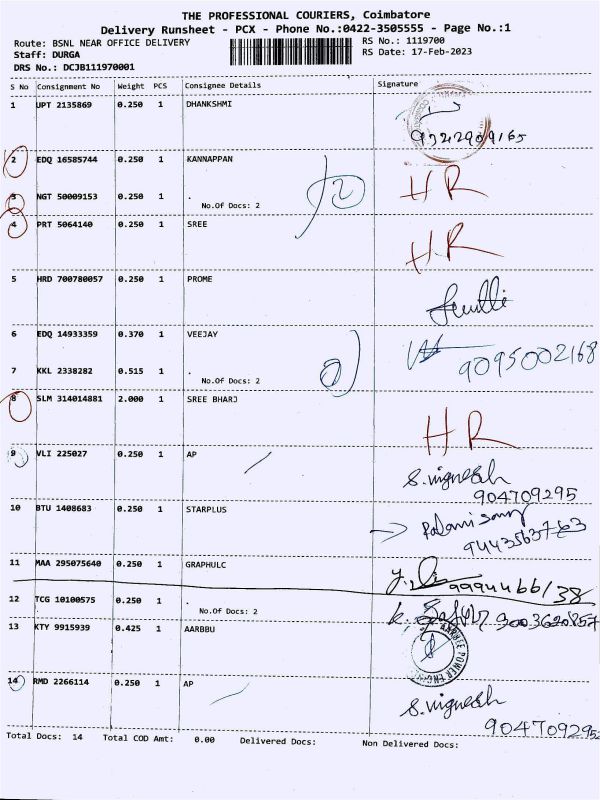 THE PROFESSIONAL COURIERS, Coimbatore
Delivery Runsheet - PCX - Phone No.:0422-3505555 - Page No.:1
Route: BSNL NEAR OFFICE DELIVERY
RS No.: 1119700
Staff: DURGA
RS Date: 17-Feb-2023
DRS No.: DCJB111970001
S No Consignment No Weight PCS Consignee Details Signature
1 UPT 2135869 0.250 1 DHANKSHMI
2 EDQ 16585744 0.250 1 KANNAPPAN HR
3 NGT 50009153 0.250 1 .
No.Of Docs: 2
4 PRT 5064140 0.250 1 SREE HR
5 HRD 700780057 0.250 1 PROME
6 EDQ 14933359 0.370 1 VEEJAY 9095002168
7 KKL 2338282 0.515 1 .
No.Of Docs: 2
8 SLM 314014881 2.000 1 SREE BHARJ HR
9 VLI 225027 0.250 1 AP S.vignesh
904709295
10 BTU 1408683 0.250 1 STARPLUS
11 MAA 295075640 0.250 1 GRAPHULC
12 TCG 10100575 0.250 1 . 9003620857
No.Of Docs: 2
13 KTY 9915939 0.425 1 AARBBU
14 RMD 2266114 0.250 1 AP S.vignesh
904709295
Total Docs: 14 Total COD Amt: 0.00 Delivered Docs: Non Delivered Docs: